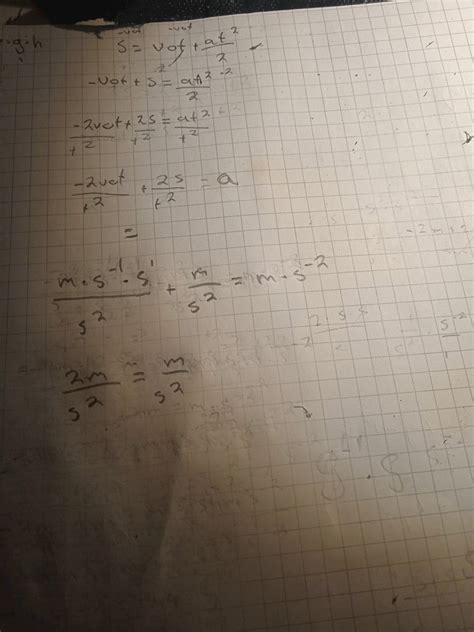 g·h
-v₀t -v₀t
s = v₀t + at²/2
-v₀t + s = at²/2 ·2
-2v₀t/t² + 2s/t² = at²/t²
-2v₀t/t² + 2s/t² = a
=
m·s⁻¹·s¹/s² + m/s² = m·s⁻²
2m/s² = m/s²